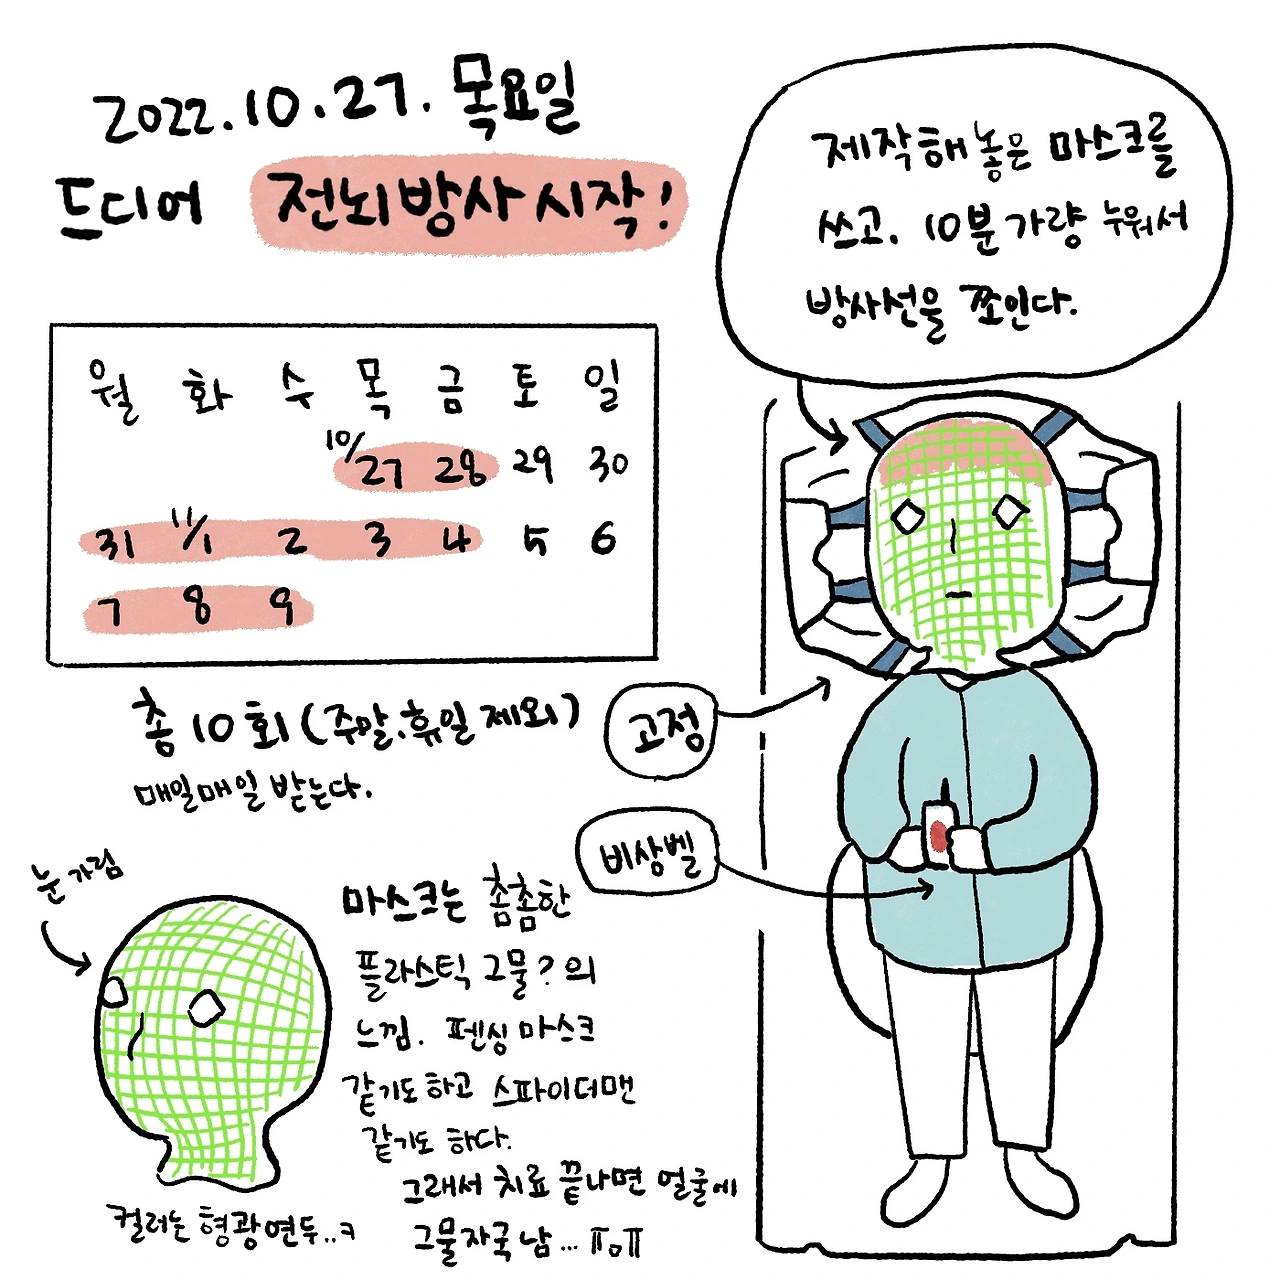 2022.10.27. 목요일
드디어 전뇌방사 시작!
제작해 놓은 마스크를
쓰고. 10분 가량 누워서
방사선을 쪼인다.
월 화 수 목 금 토 일
10/27 28 29 30
31 11/1 2 3 4 5 6
7 8 9
총 10회 (주말, 휴일 제외)
매일매일 받는다.
고정
비상벨
눈 가림
마스크는 촘촘한
플라스틱 그물? 의
느낌. 펜싱 마스크
같기도 하고 스파이더맨
같기도 하다.
그래서 치료 끝나면 얼굴에
그물자국 남... ㅠㅠ
컬러는 형광연두..ㅋ